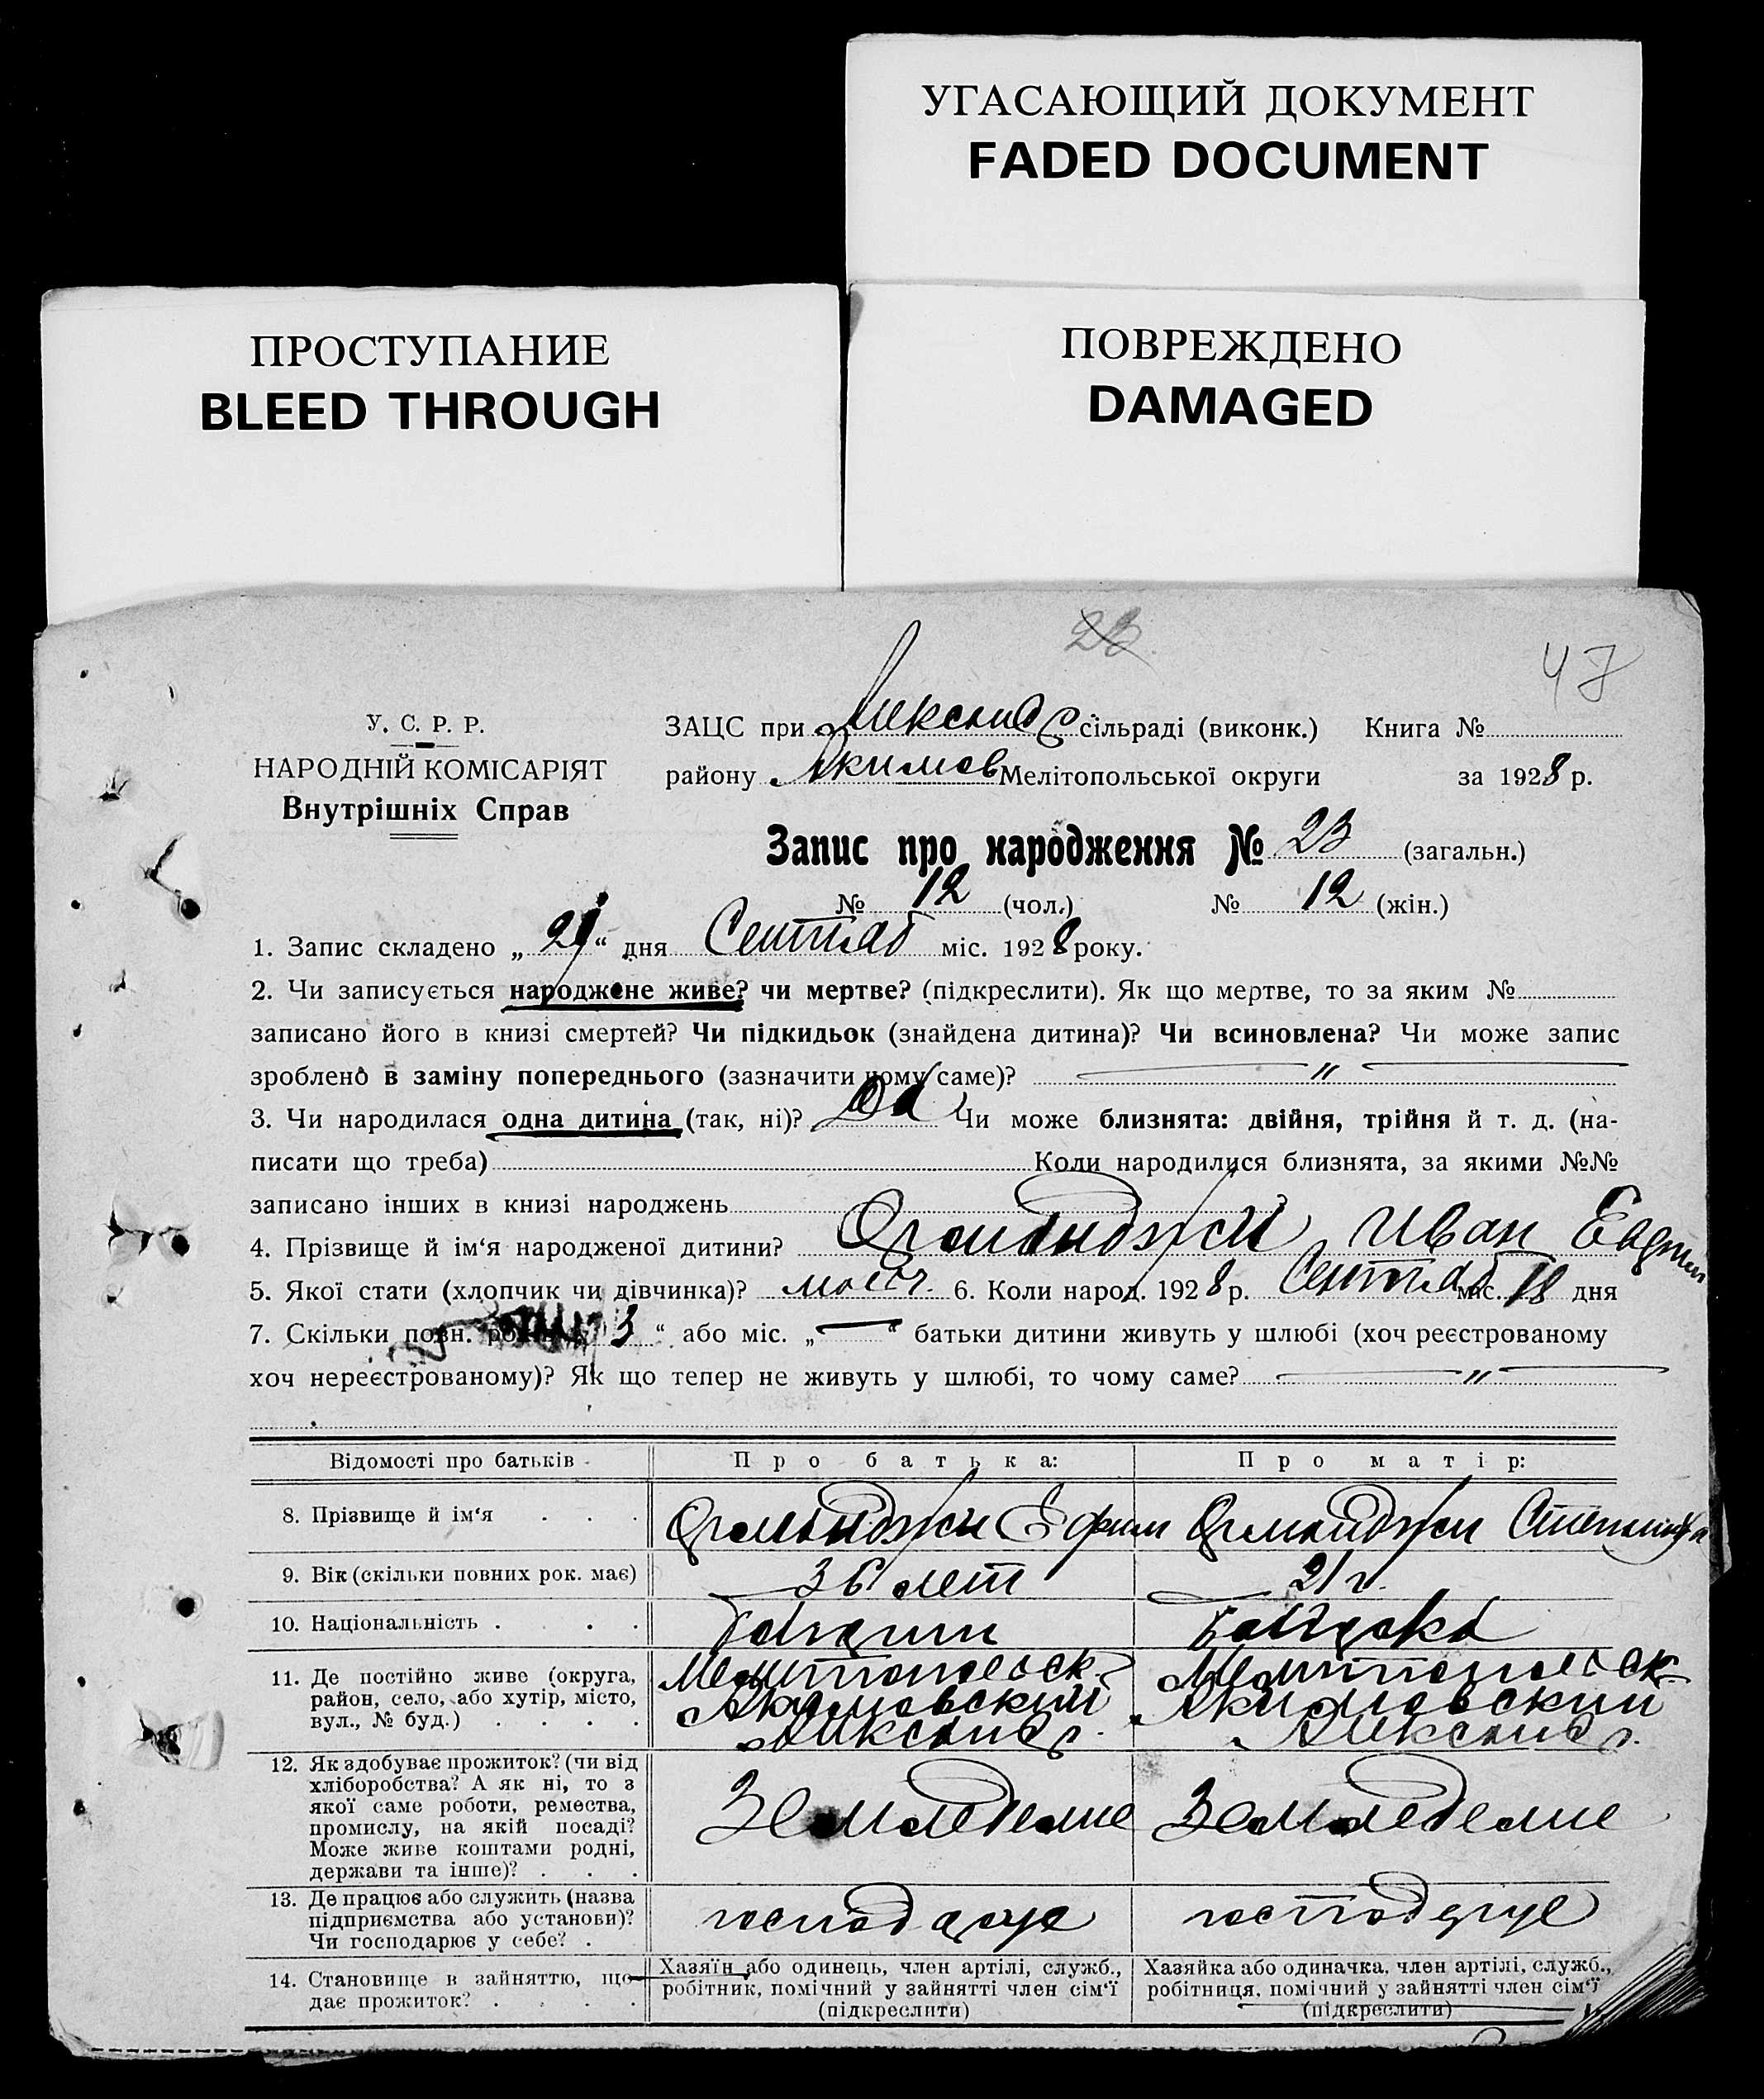 УГАСАЮЩИЙ ДОКУМЕНТ
FADED DOCUMENT
ПРОСТУПАНИЕ
BLEED THROUGH
ПОВРЕЖДЕНО
DAMAGED
23
47
У. С. Р. Р.
НАРОДНІЙ КОМІСАРІЯТ
Внутрішніх Справ
ЗАЦС при Александр сільраді (виконк.) Книга №
району Акимов Мелітопольської округи за 1928 р.
Запис про народження № 23 (загальн.)
№ 12 (чол.) № 12 (жін.)
1. Запис складено „21“ дня Сентяб міс. 1928 року.
2. Чи записується народжене живе? чи мертве? (підкреслити). Як що мертве, то за яким №
записано його в книзі смертей? Чи підкидьок (знайдена дитина)? Чи всиновлена? Чи може запис
зроблено в заміну попереднього (зазначити чому саме)? — „ —
3. Чи народилася одна дитина (так, ні)? Да Чи може близнята: двійня, трійня й т. д. (на-
писати що треба) Коли народилися близнята, за якими №№
записано інших в книзі народжень
4. Прізвище й ім‘я народженої дитини? Иван
5. Якої стати (хлопчик чи дівчинка)? 6. Коли народ. 1928 р. Сентяб міс. 18 дня
7. Скільки повн. 3 “ або міс. „—“ батьки дитини живуть у шлюбі (хоч реєстрованому
хоч нереєстрованому)? Як що тепер не живуть у шлюбі, то чому саме? — „ —
Відомості про батьків Про батька: Про матір:
8. Прізвище й ім‘я . . . Ефим
9. Вік (скільки повних рок. має) 36 лет 21 г.
10. Національність . . .
11. Де постійно живе (округа,
район, село, або хутір, місто,
вул., № буд.) . . . .
Мелитопольск Мелитопольск
Акимовский Акимовский
Александр. Александр.
12. Як здобуває прожиток? (чи від
хліборобства? А як ні, то з
якої саме роботи, ремества,
промислу, на якій посаді?
Може живе коштами родні,
держави та інше)? . . .
Земледелие Земледелие
13. Де працює або служить (назва
підприємства або установи)?
Чи господарює у себе? .
14. Становище в зайняттю, що
дає прожиток? . . . .
Хазяїн або одинець, член артілі, служб.,
робітник, помічний у зайнятті член сім‘ї
(підкреслити)
Хазяйка або одиначка, член артілі, служб.,
робітниця, помічний у зайнятті член сім‘ї
(підкреслити)